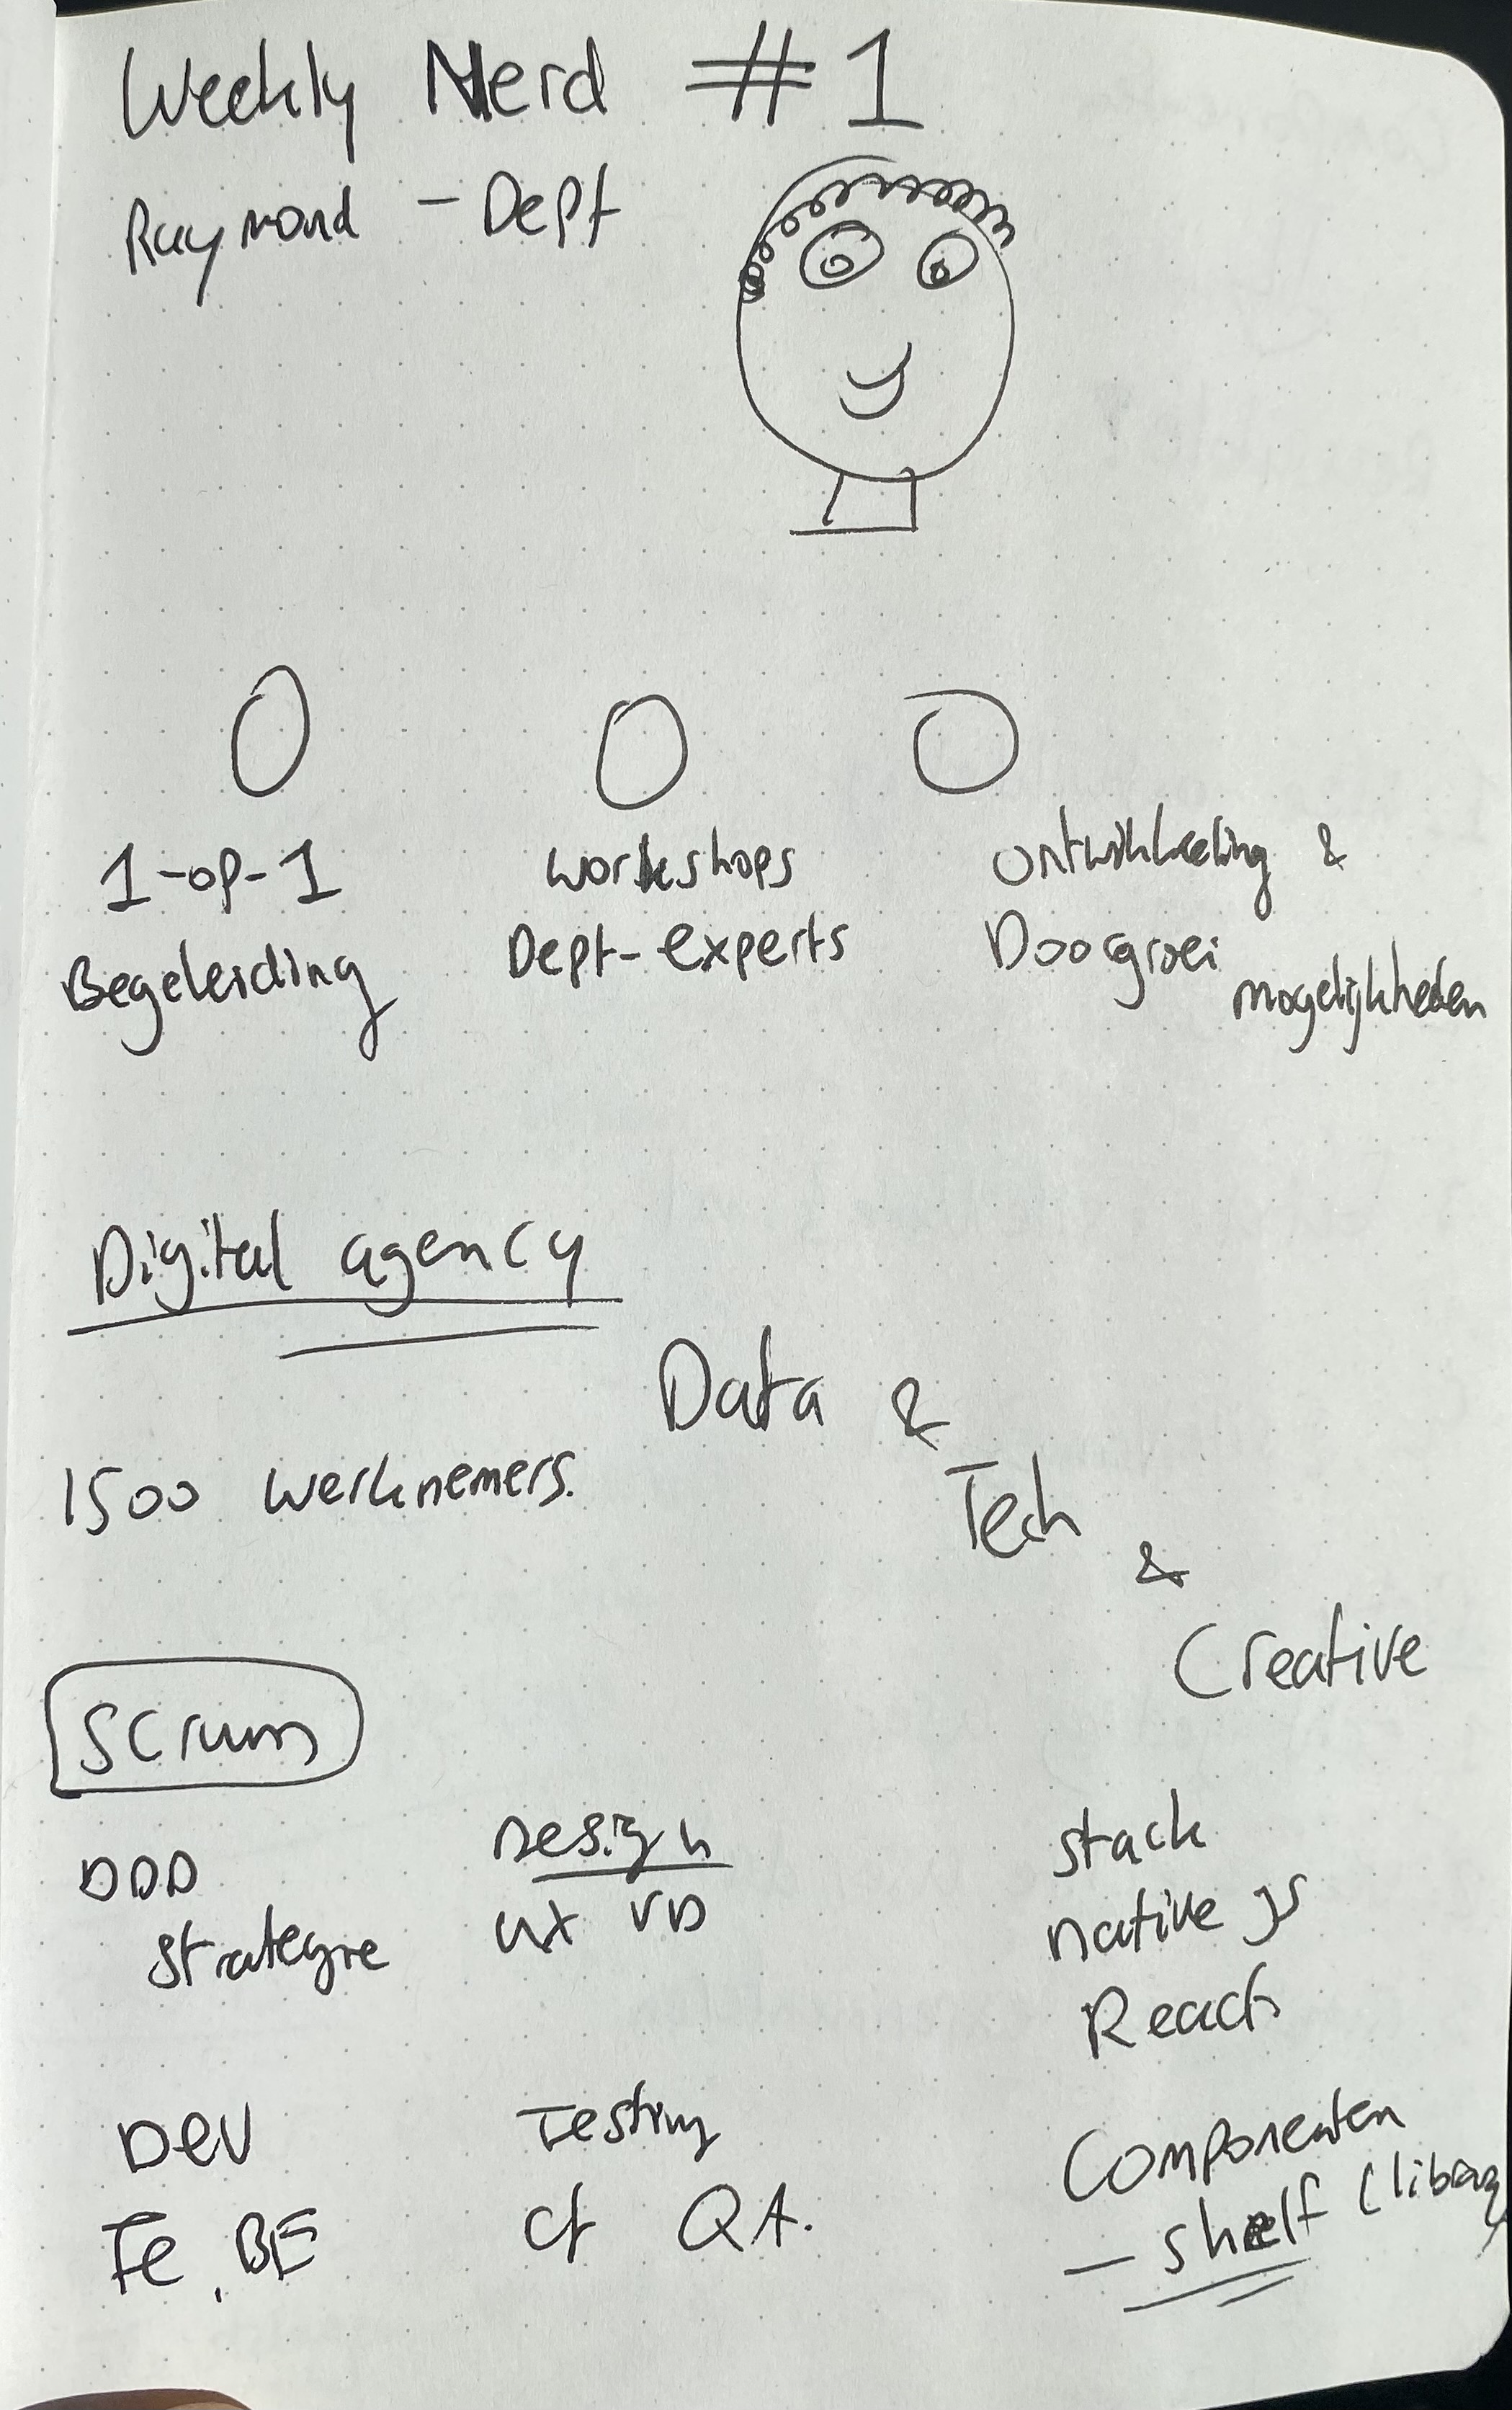 Weekly Nerd #1
Raymond - Dept
1-op-1
Begeleiding
workshops
Dept-experts
ontwikkeling &
Doorgroei
mogelijkheden
Digital agency
Data &
Tech
&
Creative
1500 werknemers.
SCrum
DDD
Strategie
Design
UX VD
Stack
native JS
React
DEV
Fe, BE
Testing
QA.
Componenten
- shelf (library